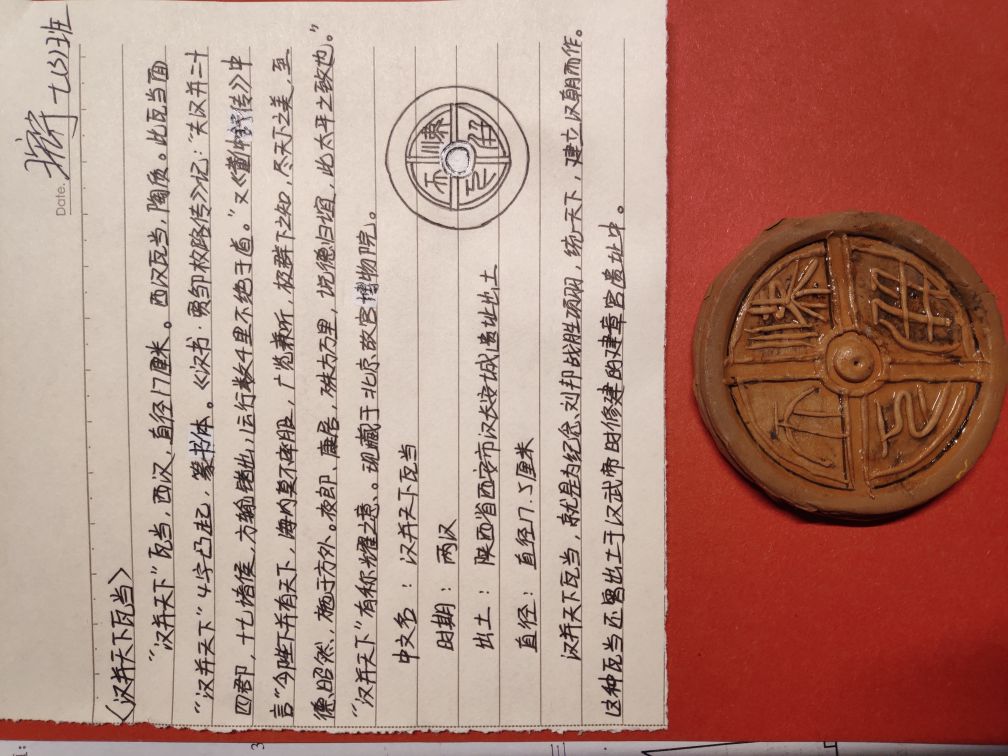 Date.
七(3)班
《汉并天下瓦当》
"汉并天下"瓦当，西汉，直径17厘米。西汉瓦当，陶质。此瓦当面
"汉并天下"4字凸起，篆书体。《汉书·贾邹枚路传》记："夫汉并二十
四郡，十七诸侯，方输错出，运行数千里不绝于道。"又《董仲舒传》中
言"今陛下并有天下，海内莫不率服，广览兼听，极群下之知，尽天下之美，至
德昭然，施于方外。夜郎、康居，殊方万里，说德归谊，此太平之致也。"
"汉并天下"有称耀之意、。现藏于北京故宫博物院。
中文名：汉并天下瓦当
时期：两汉
出土：陕西省西安市汉长安城遗址出土
直径：直径17.5厘米
汉并天下瓦当，就是为纪念刘邦战胜项羽，统一天下，建立汉朝而作。
这种瓦当还曾出土于汉武帝时修建的建章宫遗址中。